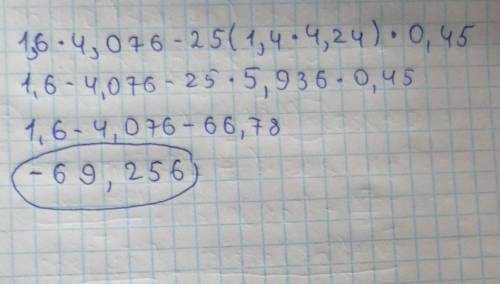 1,6 · 4,076 - 25(1,4 · 4,24) · 0,45
1,6 - 4,076 - 25 · 5,936 · 0,45
1,6 - 4,076 - 66,78
-69,256